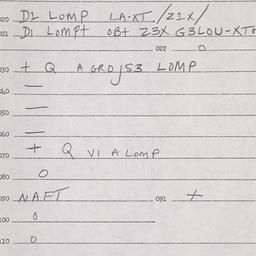 020 D1 LOMP LA·XT./Z1X/
021 D1 LOMPT OBT Z3X G3LOU-XT
022 0
030 + Q A GROJS3 LOMP
040 —
050 —
060 —
070 + Q V1 A LOMP
080 0
090 NAFT 091 +
100 0
110 0